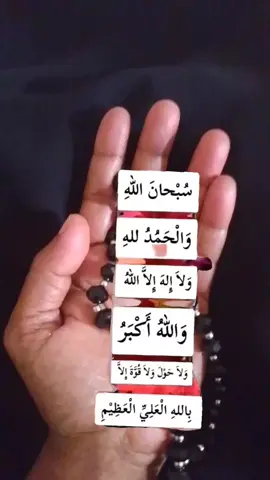 سُبْحانَ اللهِ
وَالْحَمْدُ للهِ
وَلاَ إِلهَ إِلاَّ اللهُ
وَاللهُ أَكْبَرُ
وَلاَ حَوْلَ وَلاَ قُوَّةَ اِلاَّ
بِاللهِ الْعَلِيِّ الْعَظِيْمِ